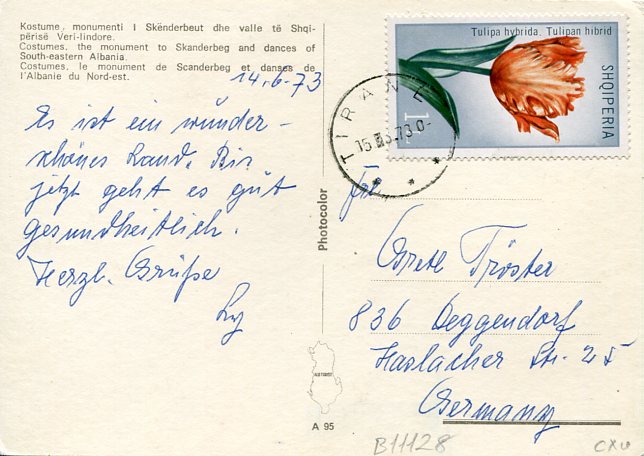 Kostume, monumenti i Skënderbeut dhe valle të Shqi-
përisë Veri-lindore.
Costumes, the monument to Skanderbeg and dances of
South-eastern Albania.
Costumes, le monument de Scanderbeg et danses de
l'Albanie du Nord-est.
14.6.73
Es ist ein wunder-
schönes Land. Bis
jetzt geht es gut
gesundheitlich.
Herzl. Grüße
Tulipa hybrida. Tulipan hibrid
SHQIPERIA
TIRANE
Photocolor
Gretl Tröster
836 Deggendorf
Haslacher Str. 25
Germany
ALBTURIST
A 95
B11128